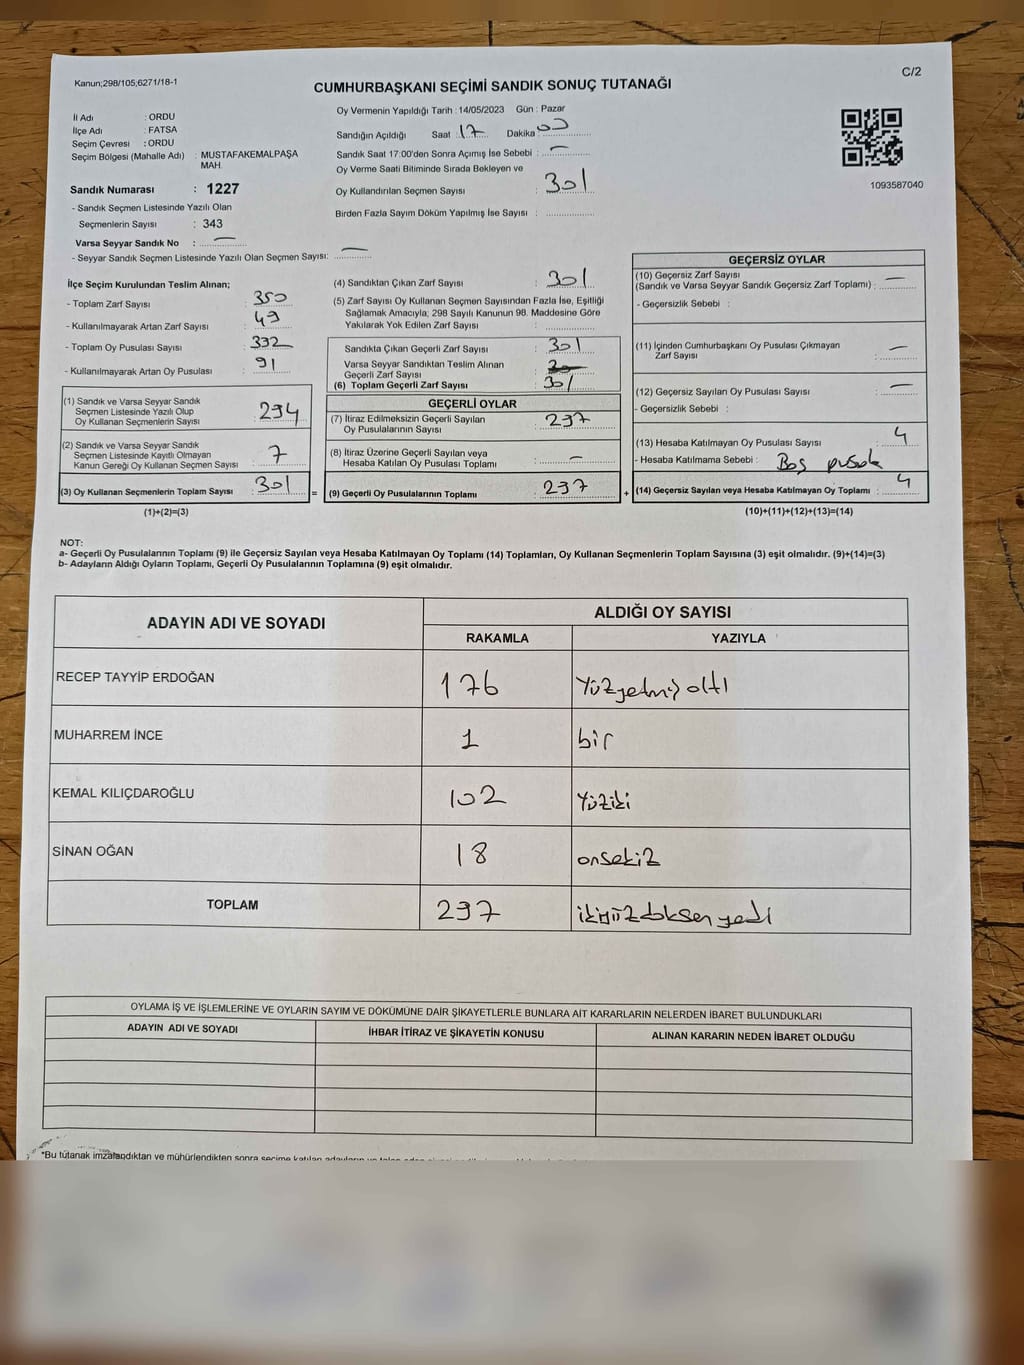 Kanun;298/105;6271/18-1
C/2
CUMHURBAŞKANI SEÇİMİ SANDIK SONUÇ TUTANAĞI
İl Adı : ORDU
İlçe Adı : FATSA
Seçim Çevresi : ORDU
Seçim Bölgesi (Mahalle Adı) : MUSTAFAKEMALPAŞA
MAH.
Sandık Numarası : 1227
- Sandık Seçmen Listesinde Yazılı Olan
Seçmenlerin Sayısı : 343
Varsa Seyyar Sandık No : —
- Seyyar Sandık Seçmen Listesinde Yazılı Olan Seçmen Sayısı: —
Oy Vermenin Yapıldığı Tarih : 14/05/2023 Gün : Pazar
Sandığın Açıldığı Saat 17 Dakika 00
Sandık Saat 17:00'den Sonra Açımış İse Sebebi : —
Oy Verme Saati Bitiminde Sırada Bekleyen ve
Oy Kullandırılan Seçmen Sayısı : 301
Birden Fazla Sayım Döküm Yapılmış İse Sayısı :
1093587040
İlçe Seçim Kurulundan Teslim Alınan;
- Toplam Zarf Sayısı : 350
- Kullanılmayarak Artan Zarf Sayısı : 49
- Toplam Oy Pusulası Sayısı : 392
- Kullanılmayarak Artan Oy Pusulası : 91
(1) Sandık ve Varsa Seyyar Sandık
Seçmen Listesinde Yazılı Olup
Oy Kullanan Seçmenlerin Sayısı : 294
(2) Sandık ve Varsa Seyyar Sandık
Seçmen Listesinde Kayıtlı Olmayan
Kanun Gereği Oy Kullanan Seçmen Sayısı : 7
(3) Oy Kullanan Seçmenlerin Toplam Sayısı : 301
(1)+(2)=(3)
(4) Sandıktan Çıkan Zarf Sayısı : 301
(5) Zarf Sayısı Oy Kullanan Seçmen Sayısından Fazla İse, Eşitliği
Sağlamak Amacıyla; 298 Sayılı Kanunun 98. Maddesine Göre
Yakılarak Yok Edilen Zarf Sayısı :
Sandıkta Çıkan Geçerli Zarf Sayısı : 301
Varsa Seyyar Sandıktan Teslim Alınan
Geçerli Zarf Sayısı :
(6) Toplam Geçerli Zarf Sayısı : 301
=
GEÇERLİ OYLAR
(7) İtiraz Edilmeksizin Geçerli Sayılan
Oy Pusulalarının Sayısı : 297
(8) İtiraz Üzerine Geçerli Sayılan veya
Hesaba Katılan Oy Pusulası Toplamı : —
(9) Geçerli Oy Pusulalarının Toplamı : 297
+
GEÇERSİZ OYLAR
(10) Geçersiz Zarf Sayısı
(Sandık ve Varsa Seyyar Sandık Geçersiz Zarf Toplamı) : —
- Geçersizlik Sebebi :
(11) İçinden Cumhurbaşkanı Oy Pusulası Çıkmayan
Zarf Sayısı : —
(12) Geçersiz Sayılan Oy Pusulası Sayısı : —
- Geçersizlik Sebebi :
(13) Hesaba Katılmayan Oy Pusulası Sayısı : 4
- Hesaba Katılmama Sebebi : Boş pusula
(14) Geçersiz Sayılan veya Hesaba Katılmayan Oy Toplamı : 4
(10)+(11)+(12)+(13)=(14)
NOT:
a- Geçerli Oy Pusulalarının Toplamı (9) ile Geçersiz Sayılan veya Hesaba Katılmayan Oy Toplamı (14) Toplamları, Oy Kullanan Seçmenlerin Toplam Sayısına (3) eşit olmalıdır. (9)+(14)=(3)
b- Adayların Aldığı Oyların Toplamı, Geçerli Oy Pusulalarının Toplamına (9) eşit olmalıdır.
ADAYIN ADI VE SOYADI ALDIĞI OY SAYISI
RAKAMLA YAZIYLA
RECEP TAYYİP ERDOĞAN 176 Yüzyetmiş altı
MUHARREM İNCE 1 bir
KEMAL KILIÇDAROĞLU 102 Yüziki
SİNAN OĞAN 18 onsekiz
TOPLAM 297 ikiyüzdoksan yedi
OYLAMA İŞ VE İŞLEMLERİNE VE OYLARIN SAYIM VE DÖKÜMÜNE DAİR ŞİKAYETLERLE BUNLARA AİT KARARLARIN NELERDEN İBARET BULUNDUKLARI
ADAYIN ADI VE SOYADI İHBAR İTİRAZ VE ŞİKAYETİN KONUSU ALINAN KARARIN NEDEN İBARET OLDUĞU
*Bu tutanak imzalandıktan ve mühürlendikten sonra seçime katılan adayların